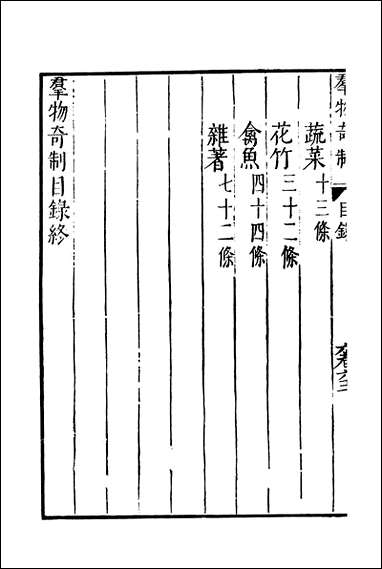 羣物奇制 目錄
蔬菜十三條
花竹三十二條
禽魚四十四條
雜著七十二條
羣物奇制目錄終